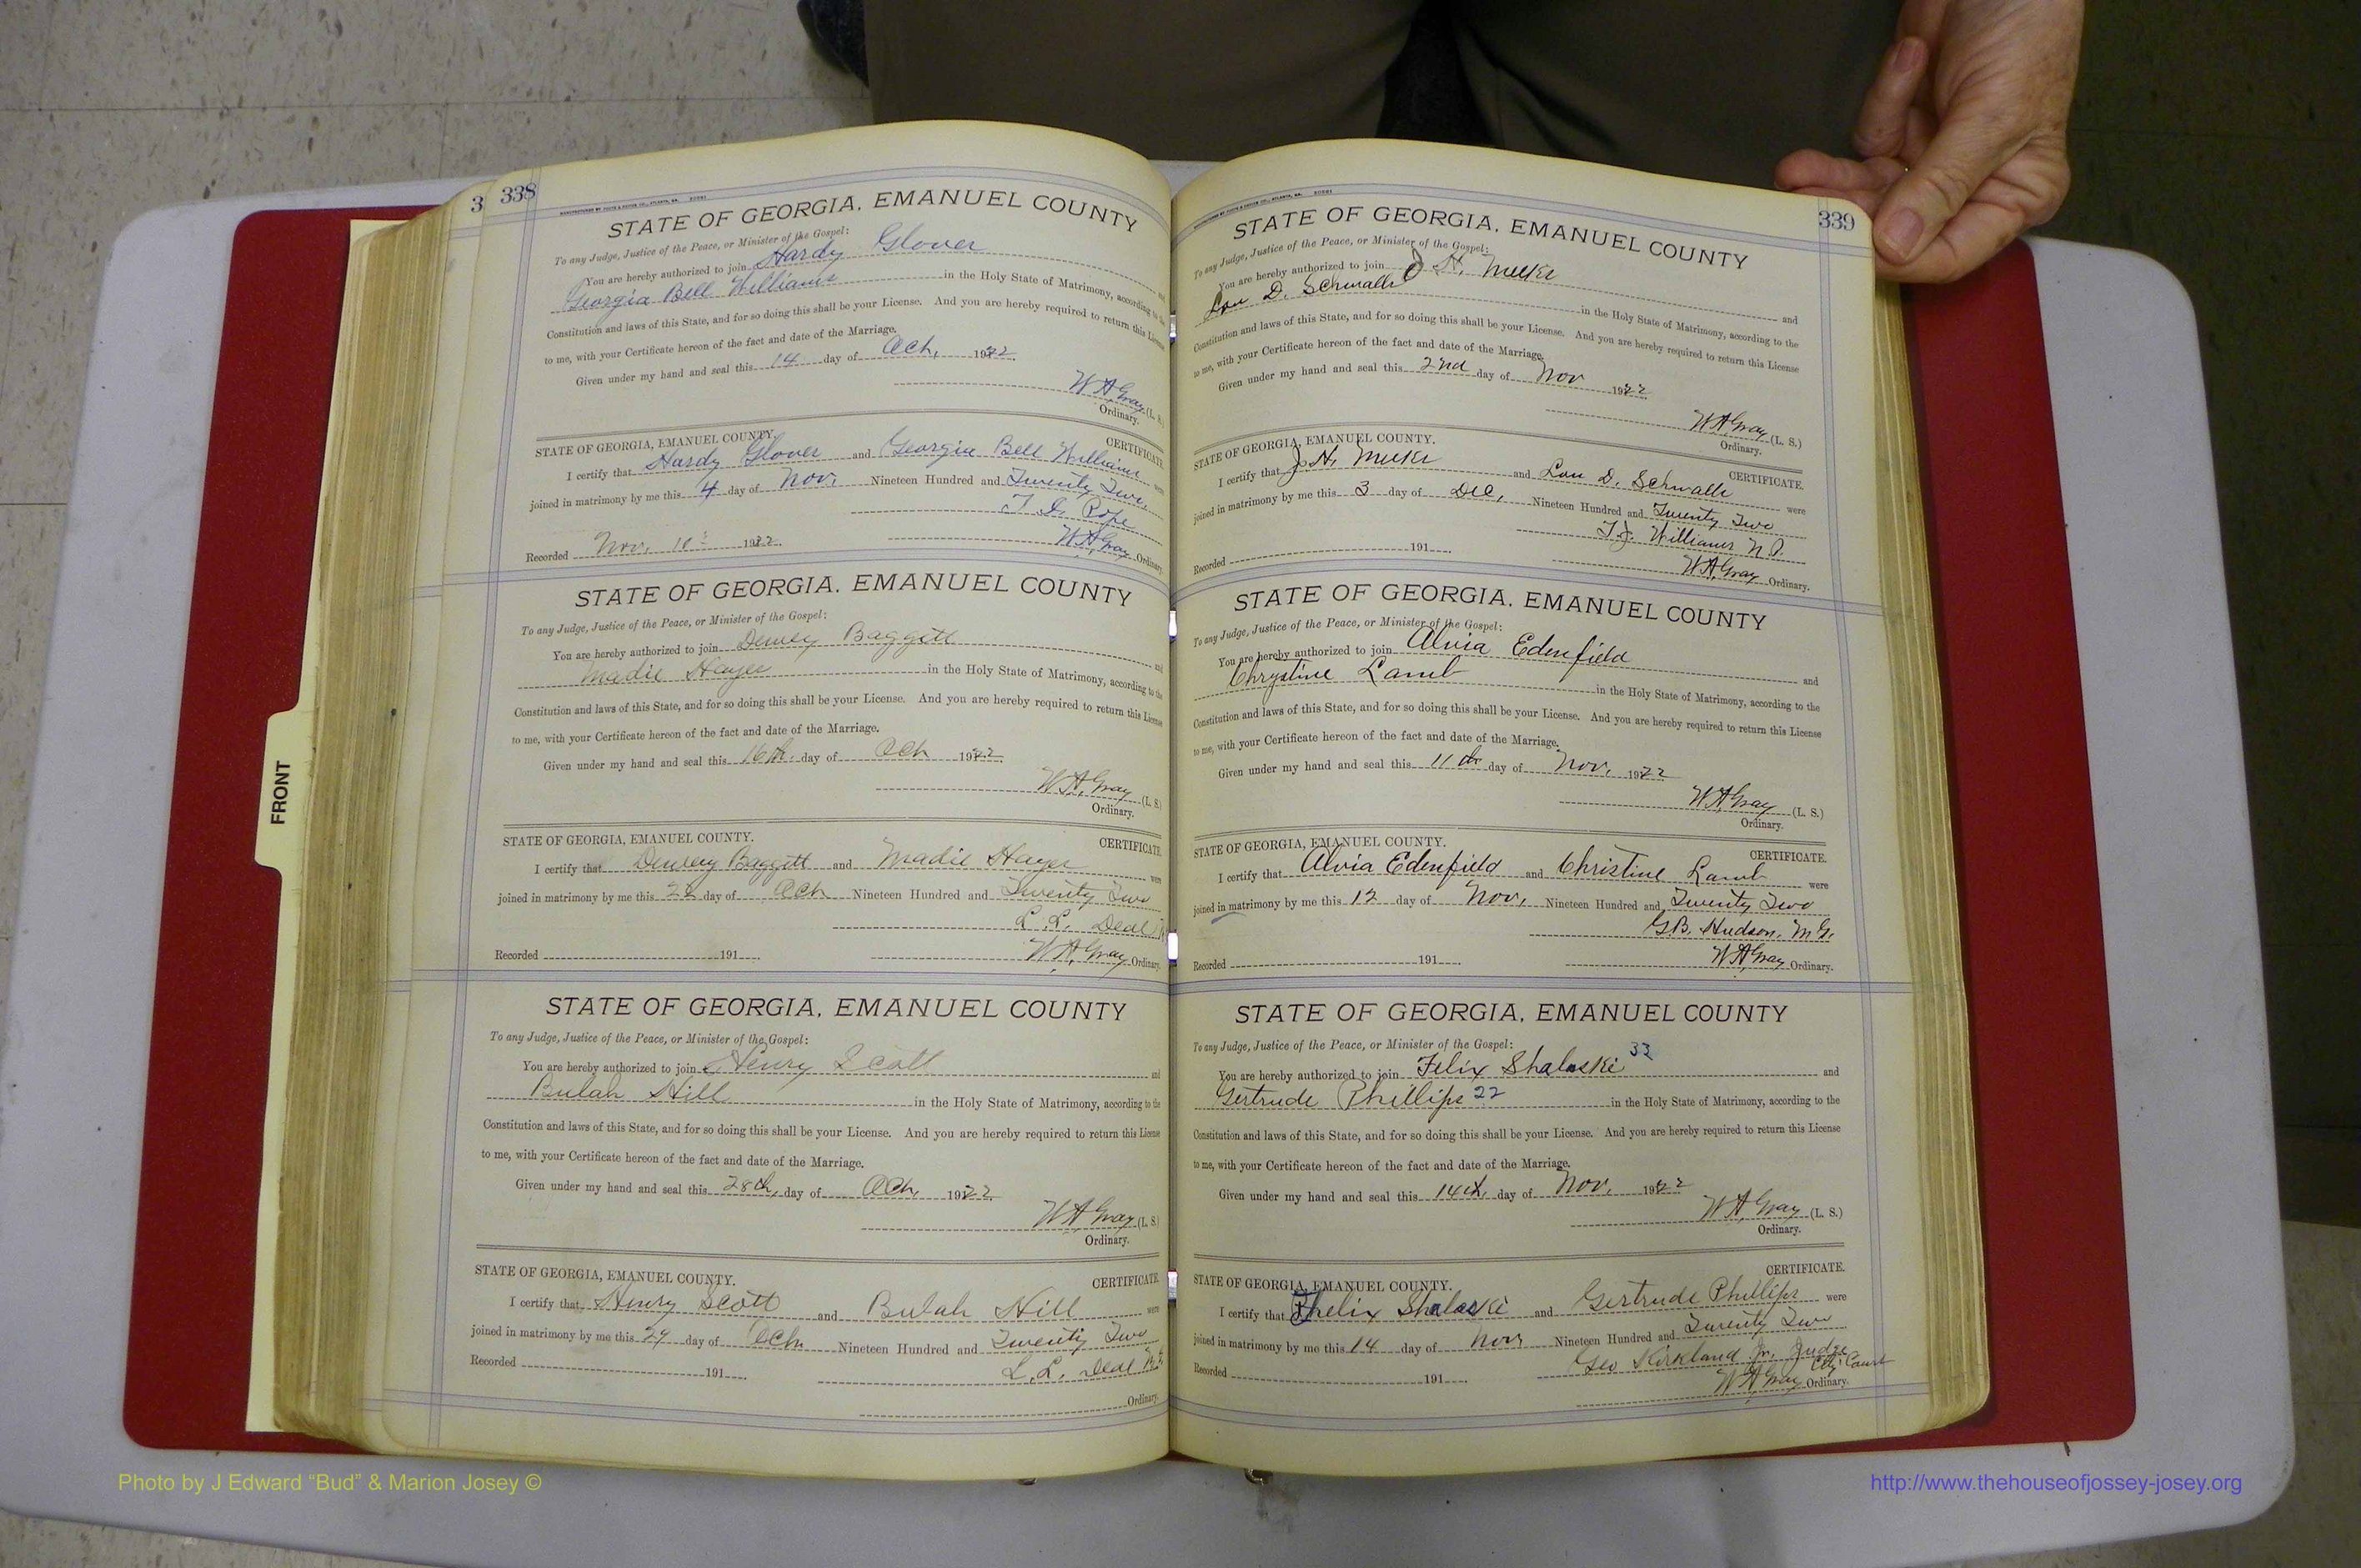 3 338
STATE OF GEORGIA, EMANUEL COUNTY
To any Judge, Justice of the Peace, or Minister of the Gospel:
You are hereby authorized to join Hardy Glover and
Georgia Bell Williams in the Holy State of Matrimony, according to the
Constitution and laws of this State, and for so doing this shall be your License. And you are hereby required to return this License
to me, with your Certificate hereon of the fact and date of the Marriage.
Given under my hand and seal this 14 day of Oct, 1922
W A Gray (L. S.)
Ordinary.
STATE OF GEORGIA, EMANUEL COUNTY.
CERTIFICATE.
I certify that Hardy Glover and Georgia Bell Williams were
joined in matrimony by me this 4 day of Nov. Nineteen Hundred and Twenty Two,
Pope
Recorded Nov. 10 1922 W A Gray Ordinary.
STATE OF GEORGIA, EMANUEL COUNTY
To any Judge, Justice of the Peace, or Minister of the Gospel:
You are hereby authorized to join Dewey Baggett and
Madie Hayes in the Holy State of Matrimony, according to the
Constitution and laws of this State, and for so doing this shall be your License. And you are hereby required to return this License
to me, with your Certificate hereon of the fact and date of the Marriage.
Given under my hand and seal this 16th. day of Oct 1922
W A Gray (L. S.)
Ordinary.
STATE OF GEORGIA, EMANUEL COUNTY.
CERTIFICATE.
I certify that Dewey Baggett and Madie Hayes were
joined in matrimony by me this 22 day of Oct Nineteen Hundred and Twenty Two
L. L. Deal
Recorded 191 W A Gray Ordinary.
STATE OF GEORGIA, EMANUEL COUNTY
To any Judge, Justice of the Peace, or Minister of the Gospel:
You are hereby authorized to join Henry Scott and
Bulah Hill in the Holy State of Matrimony, according to the
Constitution and laws of this State, and for so doing this shall be your License. And you are hereby required to return this License
to me, with your Certificate hereon of the fact and date of the Marriage.
Given under my hand and seal this 28th, day of Oct, 1922
W A Gray (L. S.)
Ordinary.
STATE OF GEORGIA, EMANUEL COUNTY.
CERTIFICATE.
I certify that Henry Scott and Bulah Hill were
joined in matrimony by me this 29 day of Oct Nineteen Hundred and Twenty Two
Recorded 191 L. L. Deal
Ordinary.
339
STATE OF GEORGIA, EMANUEL COUNTY
To any Judge, Justice of the Peace, or Minister of the Gospel:
You are hereby authorized to join J H. Meeks and
Lou D. Schwalls in the Holy State of Matrimony, according to the
Constitution and laws of this State, and for so doing this shall be your License. And you are hereby required to return this License
to me, with your Certificate hereon of the fact and date of the Marriage.
Given under my hand and seal this 2nd day of Nov 1922
W A Gray (L. S.)
Ordinary.
STATE OF GEORGIA, EMANUEL COUNTY.
CERTIFICATE.
I certify that J. H. Meeks and Lou D. Schwalls were
joined in matrimony by me this 3 day of Dec, Nineteen Hundred and Twenty Two
T. J. Williams N P.
Recorded 191 W A Gray Ordinary.
STATE OF GEORGIA, EMANUEL COUNTY
To any Judge, Justice of the Peace, or Minister of the Gospel:
You are hereby authorized to join Alvia Edenfield and
Chrystine Lamb in the Holy State of Matrimony, according to the
Constitution and laws of this State, and for so doing this shall be your License. And you are hereby required to return this License
to me, with your Certificate hereon of the fact and date of the Marriage.
Given under my hand and seal this 11th day of Nov, 1922
W A Gray (L. S.)
Ordinary.
STATE OF GEORGIA, EMANUEL COUNTY.
CERTIFICATE.
I certify that Alvia Edenfield and Christine Lamb were
joined in matrimony by me this 12 day of Nov, Nineteen Hundred and Twenty Two
G.B. Hudson, M G.
Recorded 191 W A Gray Ordinary.
STATE OF GEORGIA, EMANUEL COUNTY
To any Judge, Justice of the Peace, or Minister of the Gospel:
You are hereby authorized to join Felix Shalaski 33 and
Gertrude Phillips 22 in the Holy State of Matrimony, according to the
Constitution and laws of this State, and for so doing this shall be your License. And you are hereby required to return this License
to me, with your Certificate hereon of the fact and date of the Marriage.
Given under my hand and seal this 14th, day of Nov, 1922
W A Gray (L. S.)
Ordinary.
CERTIFICATE.
STATE OF GEORGIA, EMANUEL COUNTY.
I certify that Phelix Shalaski and Gertrude Phillips were
joined in matrimony by me this 14 day of Nov Nineteen Hundred and Twenty Two
Geo Kirkland Jr, Judge
City Court
Recorded 191 W A Gray Ordinary.
FRONT
Photo by J Edward “Bud” & Marion Josey ©
http://www.thehouseofjossey-josey.org